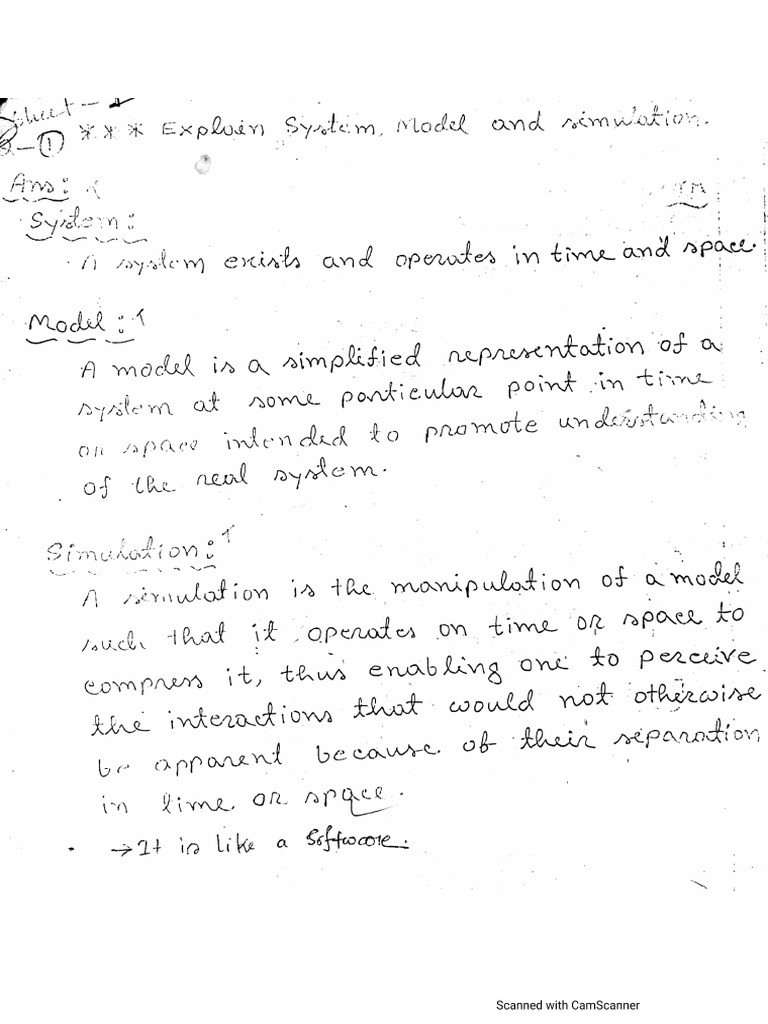 Sheet - 1
Q-① *** Explain System, Model and simulation.
Ans:
System:
A system exists and operates in time and space.
Model:
A model is a simplified representation of a
system at some particular point in time
or space intended to promote understanding
of the real system.
Simulation:
A simulation is the manipulation of a model
such that it operates on time or space to
compress it, thus enabling one to perceive
the interactions that would not otherwise
be apparent because of their separation
in time or space.
→ It is like a software.
Scanned with CamScanner